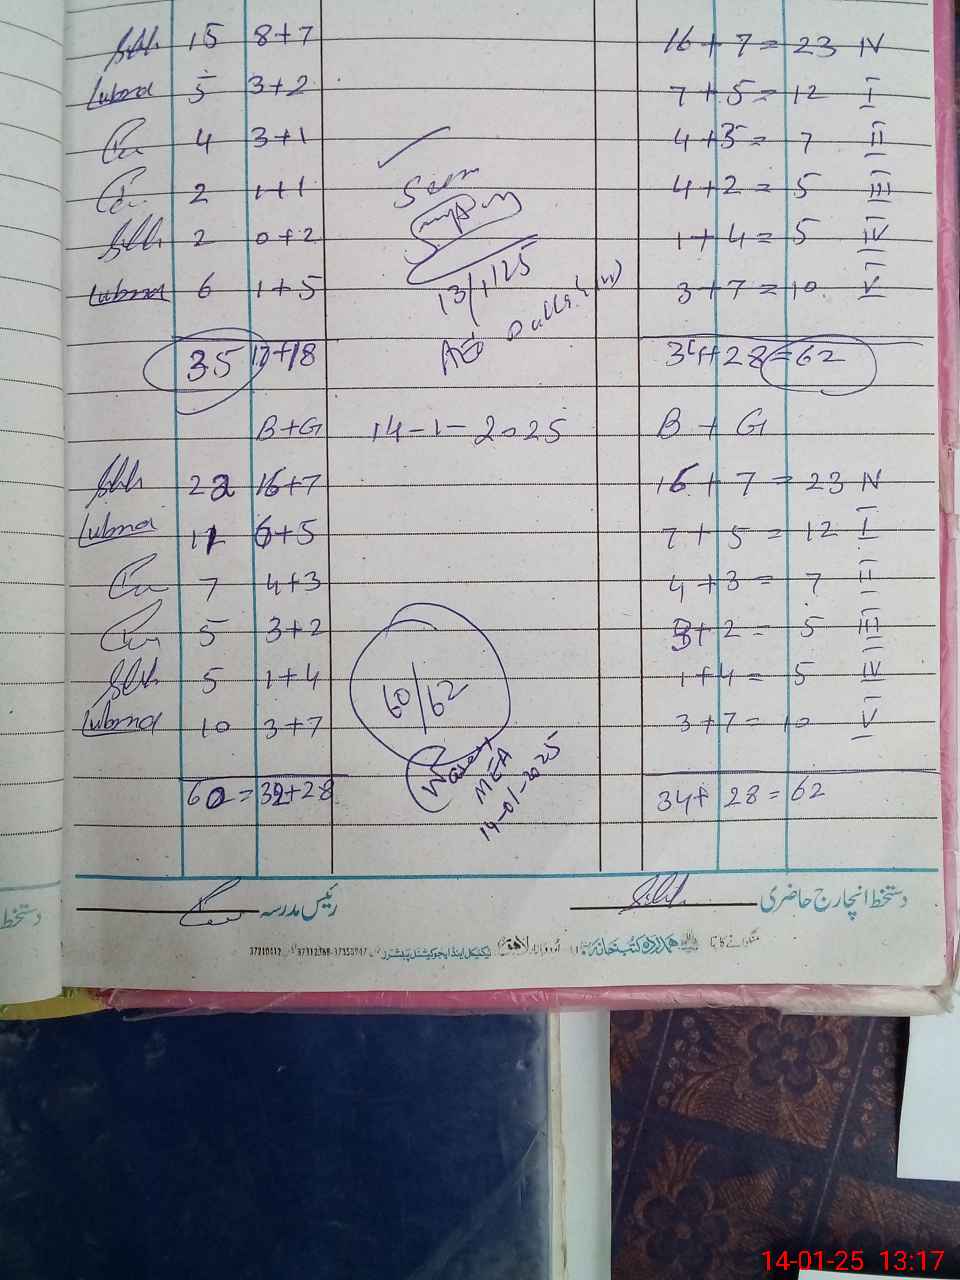 15 8+7 16 + 7 = 23 IV
Lubna 5 3+2 7 + 5 = 12 I
4 3+1 4 + 3 = 7 II
2 1+1 4 + 2 = 5 III
2 0+2 1 + 4 = 5 IV
Lubna 6 1+5 3 + 7 = 10 V
Seen
13/1/25
35 17+18 34+28=62
B+G 14-1-2025 B + G
22 16+7 16 + 7 = 23 IV
Lubna 11 6+5 7 + 5 = 12 I
7 4+3 4 + 3 = 7 II
5 3+2 3+ 2 = 5 III
5 1+4 1 + 4 = 5 IV
Lubna 10 3+7 3 + 7 = 10 V
60/62
MEA
14-01-2025
60=32+28 34+ 28 = 62
دستخط انچارج حاضری رئیس مدرسہ
دستخط
ہمدرد کتب خانہ
14-01-25 13:17